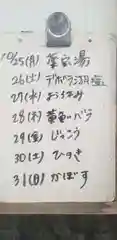 10/25(月) 薬宝湯
26(火) デボラ湖塩
27(水) お休み
28(木) 黄色いバラ
29(金) じゃこう
30(土) ひのき
31(日) かぼす